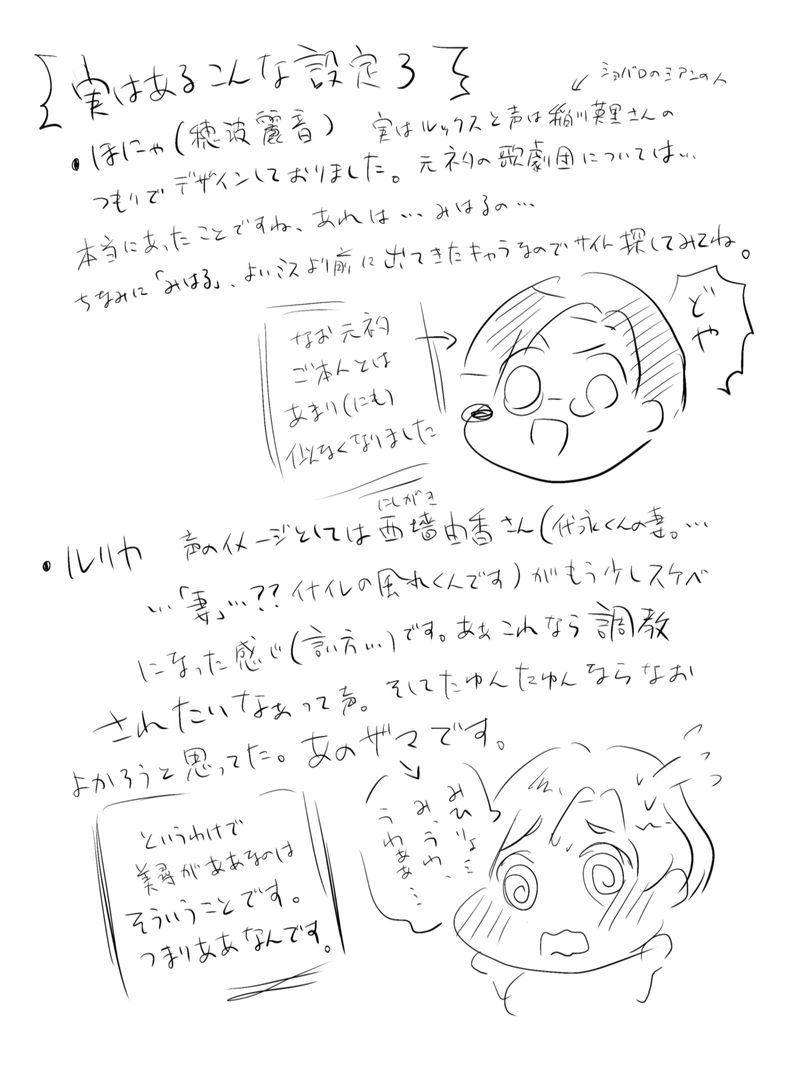 実はあるこんな設定3
ショバロのミアンの人
・ほにゃ(穂波麗音) 実はルックスと声は稲川英里さんの
つもりでデザインしておりました。元ネタの歌劇団については…
本当にあったことですね、あれは…みはるの…
ちなみに「みはる」、よいこミスより前に出てきたキャラなのでサイト探してみてね。
どや
なお元ネタ
ご本人とは
あまり(にも)
似なくなりました
・ルリカ 声のイメージとしては西墻由香さん(代永くんの妻。…
にしがき
…「妻」…??イナイレの風丸くんです)がもう少しスケベ
になった感じ(言い方…)です。ああこれなら調教
されたいなぁって声。そしてたゆんたゆんならなお
よかろうと思ってた。あのザマです。
みひりょ…
み、うわ、
うわああ…
というわけで
美尋がああなのは
そういうことです。
つまりああなんです。